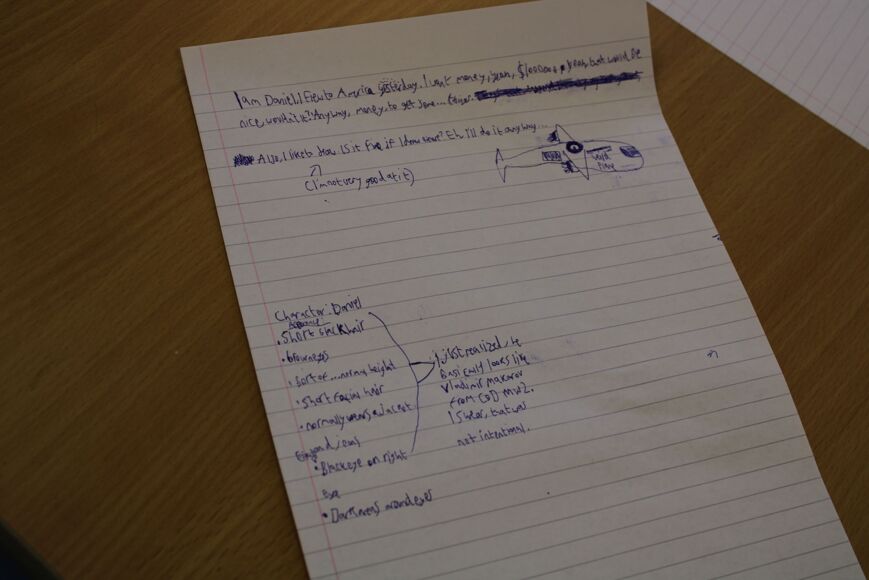 I am Daniel. I flew to America yesterday. I want money, yeah, $100000+, yeah, that would be
nice, wouldn't it? Anyway, money, to get some...
Also, I like to draw. Is it fine if I draw here? Eh, I'll do it anyway...
(I'm not very good at it)
Character: Daniel
• Short black hair
• brown eyes
• Sort of... normal height
• Short facial hair
• normally wears a jacket
and jeans
• Black eye on right
eye
• Darkness around eyes
I just realized, he
basically looks like
Vladimir Makarov
from COD MW2.
I swear, that was
not intentional.